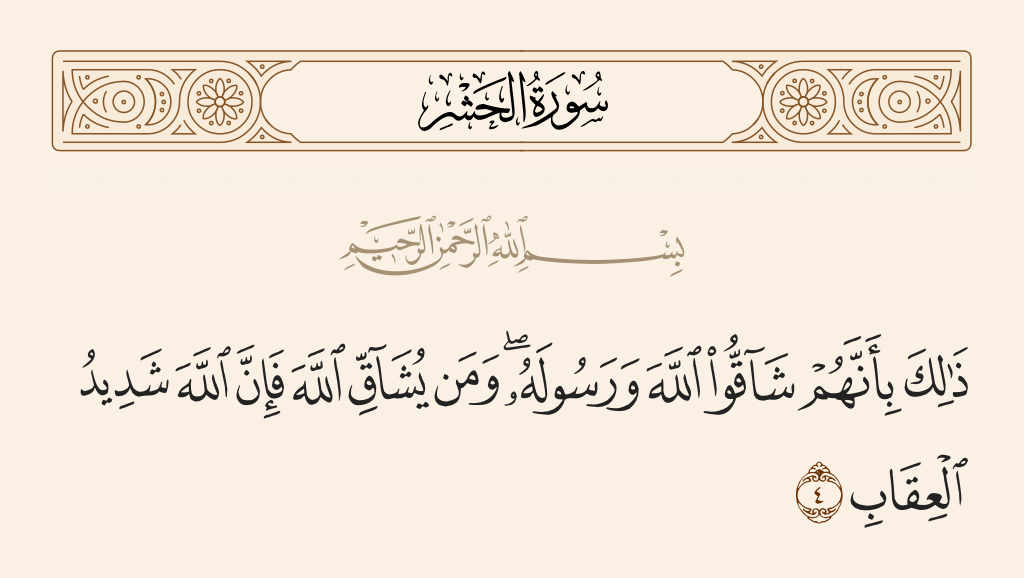 سُورَةُ الحَشْرِ
بِسْمِ ٱللَّهِ ٱلرَّحْمَٰنِ ٱلرَّحِيمِ
ذَٰلِكَ بِأَنَّهُمْ شَآقُّوا۟ ٱللَّهَ وَرَسُولَهُۥ ۖ وَمَن يُشَآقِّ ٱللَّهَ فَإِنَّ ٱللَّهَ شَدِيدُ
ٱلْعِقَابِ ٤